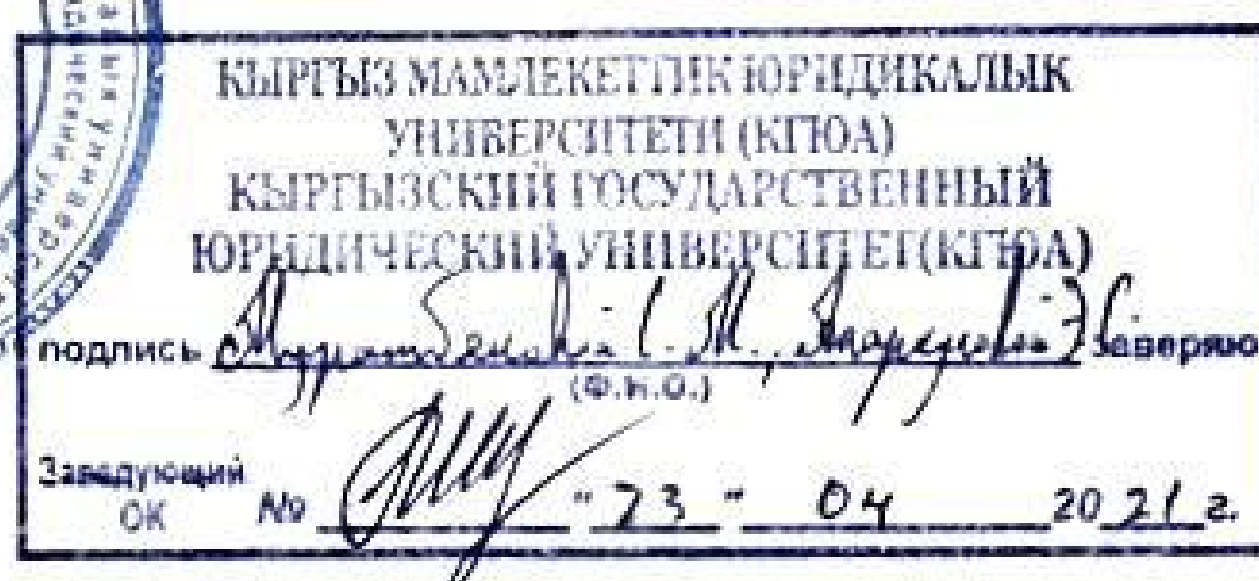 КЫРГЫЗ МАМЛЕКЕТТИК ЮРИДИКАЛЫК
УНИВЕРСИТЕТИ (КГЮА)
КЫРГЫЗСКИЙ ГОСУДАРСТВЕННЫЙ
ЮРИДИЧЕСКИЙ УНИВЕРСИТЕТ(КГЮА)
подпись Муратбековой С. М., заверяю
(Ф.И.О.)
Заведующий
ОК № "23" 04 2021 г.